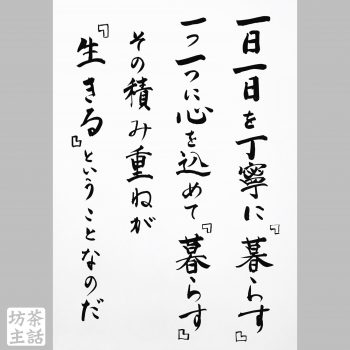 一日一日を丁寧に『暮らす』
一つ一つに心を込めて『暮らす』
その積み重ねが
『生きる』ということなのだ
坊主茶話